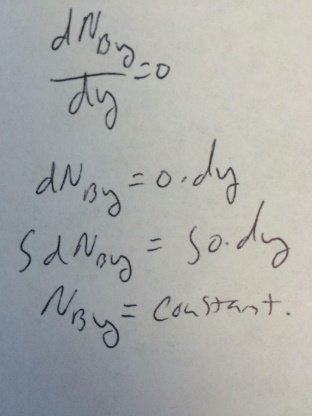 dN_By/dy = 0
dN_By = 0 · dy
∫dN_By = ∫0 · dy
N_By = constant.